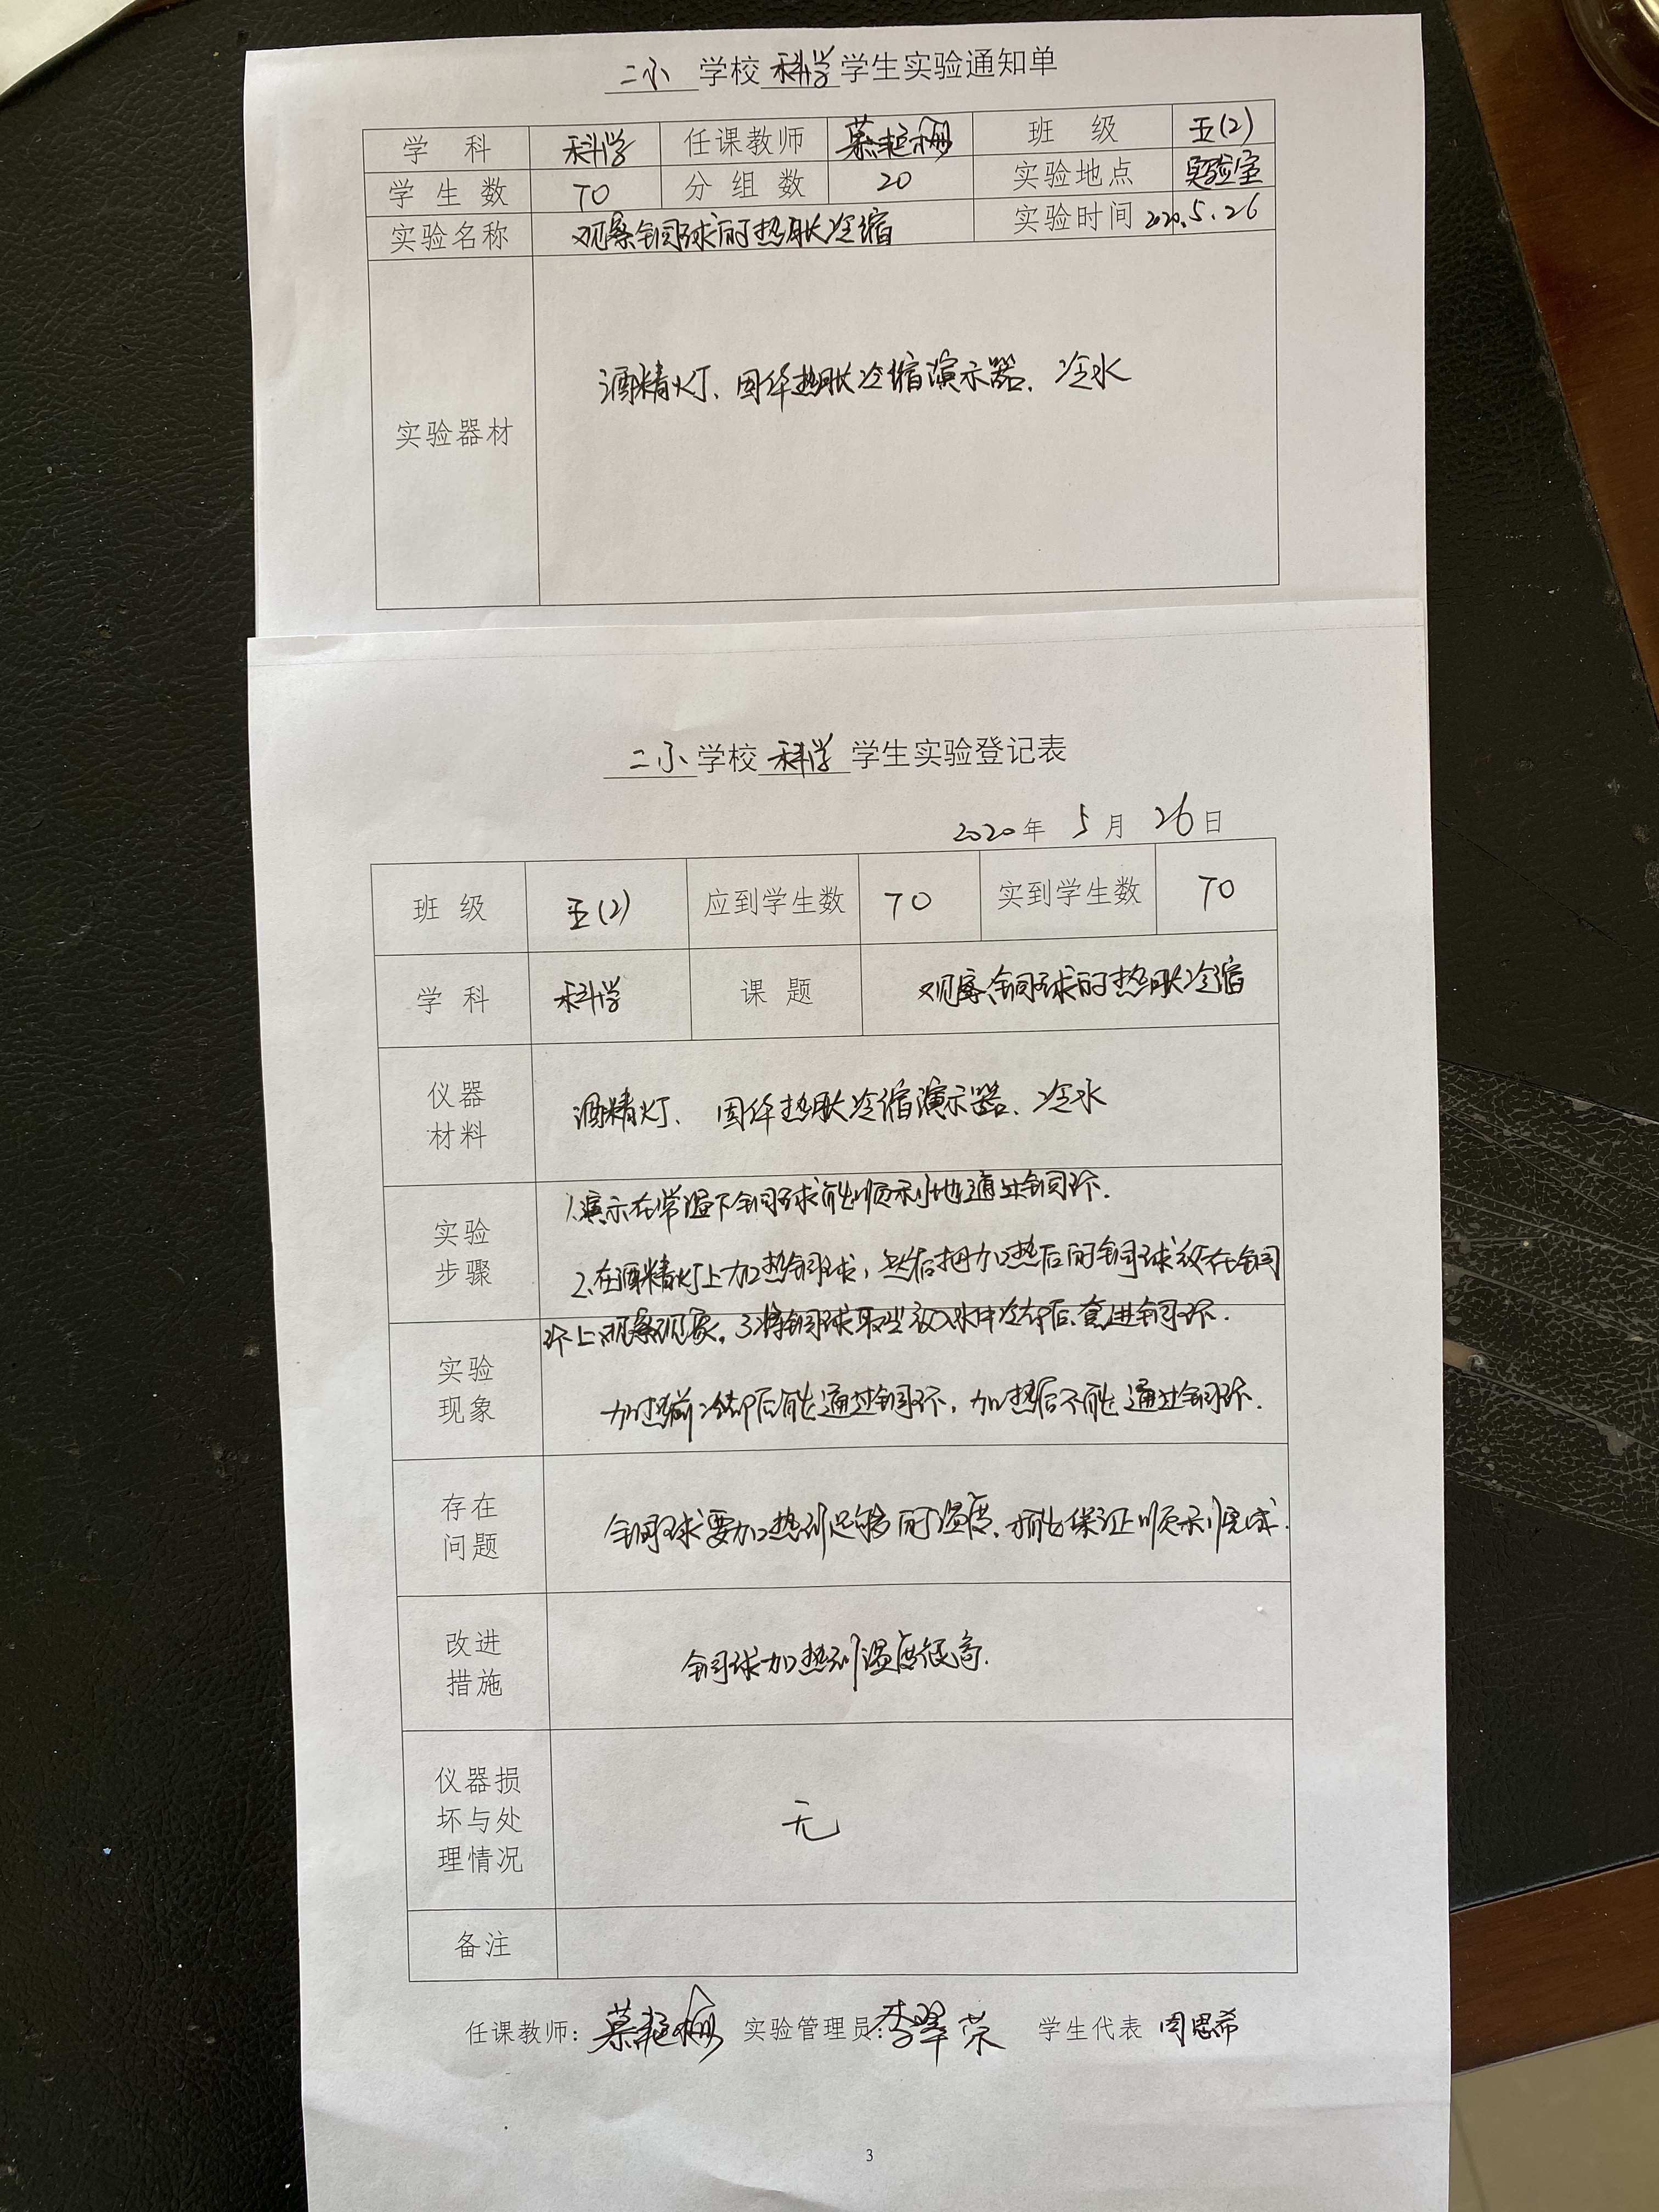 二小 学校 科学 学生实验通知单
学 科 科学 任课教师 慕艳梅 班 级 五(2)
学 生 数 70 分 组 数 20 实验地点 实验室
实验名称 观察铜球的热胀冷缩 实验时间 2020.5.26
实验器材 酒精灯、固体热胀冷缩演示器、冷水
二小 学校 科学 学生实验登记表
2020年 5月 26日
班 级 五(2) 应到学生数 70 实到学生数 70
学 科 科学 课 题 观察铜球的热胀冷缩
仪器
材料
酒精灯、固体热胀冷缩演示器、冷水
实验
步骤
1.演示在常温下铜球能顺利地通过铜环.
2.在酒精灯上加热铜球,然后把加热后的铜球放在铜
环上观察现象。3.将铜球取些放入水中冷却后,套进铜环.
实验
现象
加热前冷却后能通过铜环,加热后不能通过铜环.
存在
问题
铜球要加热到足够的温度,才能保证顺利完成.
改进
措施
铜球加热到温度很高.
仪器损
坏与处
理情况
无
备注
任课教师: 慕艳梅 实验管理员: 李翠荣 学生代表 周思希
3